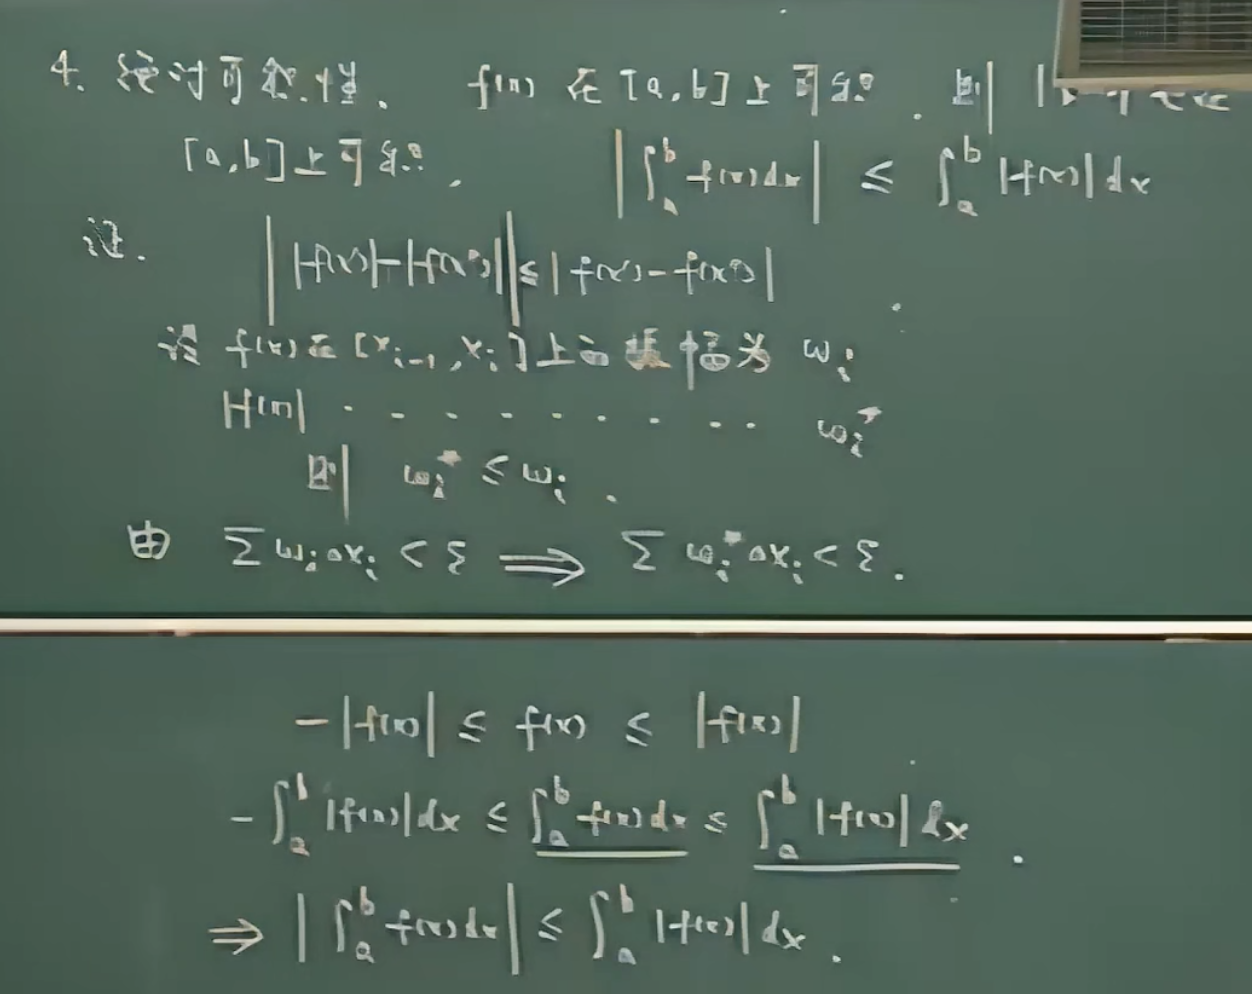 4. 绝对可积性. f(x) 在 [a,b] 上可积. 则 |f(x)| 在
[a,b] 上可积, |∫_a^b f(x)dx| ≤ ∫_a^b |f(x)|dx
证. ||f(x')|-|f(x'')|| ≤ |f(x')-f(x'')|
设 f(x) 在 [x_{i-1}, x_i] 上的振幅为 ω_i
|f(x)| · · · · · · · · · · ω_i^*
则 ω_i^* ≤ ω_i .
由 Σ ω_i Δx_i < ξ ⟹ Σ ω_i^* Δx_i < ξ .
-|f(x)| ≤ f(x) ≤ |f(x)|
-∫_a^b |f(x)|dx ≤ ∫_a^b f(x)dx ≤ ∫_a^b |f(x)|dx .
⇒ |∫_a^b f(x)dx| ≤ ∫_a^b |f(x)|dx .